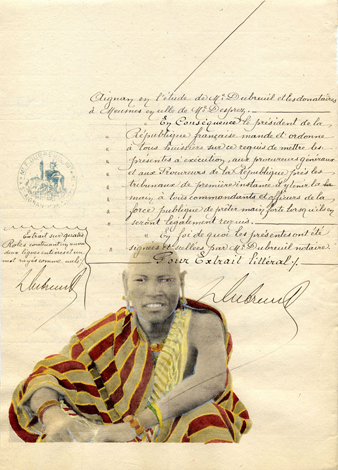 Aignan en l'étude de Me Dubreuil et les donataires
à Meusnes en celle de Me Desprez.
En Conséquence le président de la
République française mande et ordonne
à tous huissiers sur ce requis de mettre les
présentes à exécution, aux procureurs généraux
et aux Procureurs de la République près les
tribunaux de première instance d'y tenir la
main, à tous commandants et officiers de la
force publique de prêter main forte lorsqu'ils en
seront légalement requis.
En foi de quoi les présentes ont été
signées et scellées par Me Dubreuil notaire.
Pour Extrait littéral /.
Extrait sur quatre
Rôles contenant
deux lignes
mot rayé comme nul
Dubreuil
Dubreuil